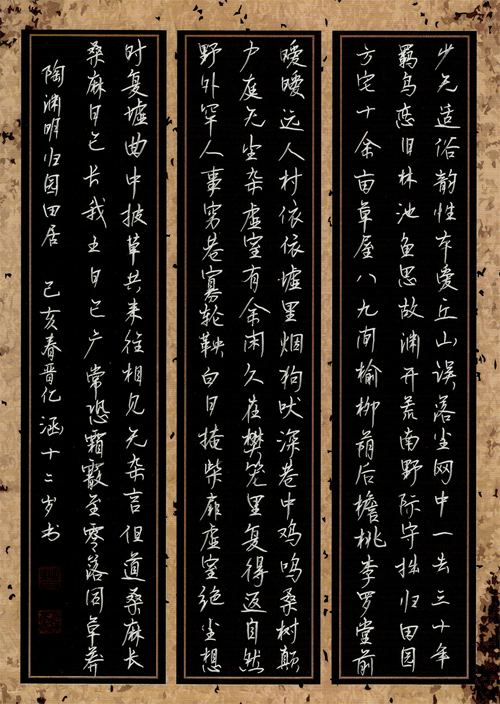 少无造俗韵性本爱丘山误落尘网中一去三十年
羁鸟恋旧林池鱼思故渊开荒南野际守拙归田园
方宅十余亩草屋八九间榆柳荫后檐桃李罗堂前
暧暧远人村依依墟里烟狗吠深巷中鸡鸣桑树颠
户庭无尘杂虚室有余闲久在樊笼里复得返自然
野外罕人事穷巷寡轮鞅白日掩柴扉虚室绝尘想
时复墟曲中披草共来往相见无杂言但道桑麻长
桑麻日已长我土日已广常恐霜霰至零落同草莽
陶渊明归园田居 己亥春晋亿涵十二岁书